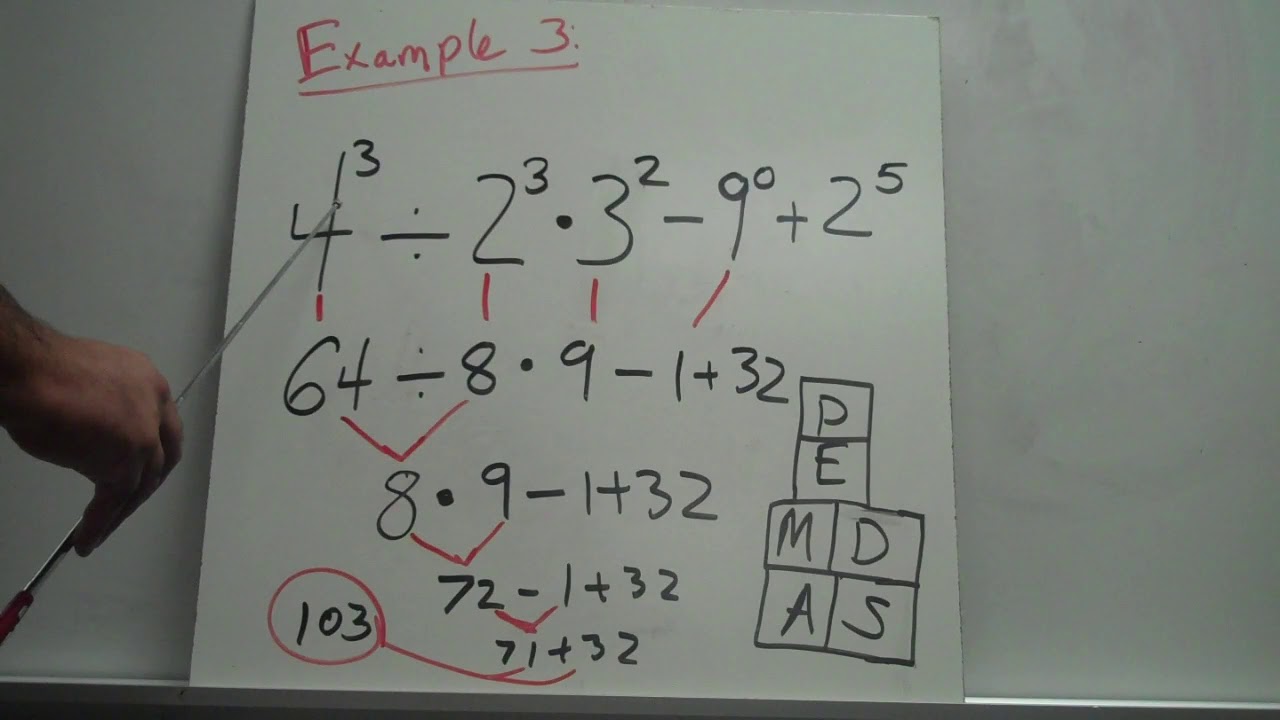 Example 3:
4³ ÷ 2³ · 3² − 9⁰ + 2⁵
64 ÷ 8 · 9 − 1 + 32
8 · 9 − 1 + 32
72 − 1 + 32
71 + 32
103
P
E
M D
A S